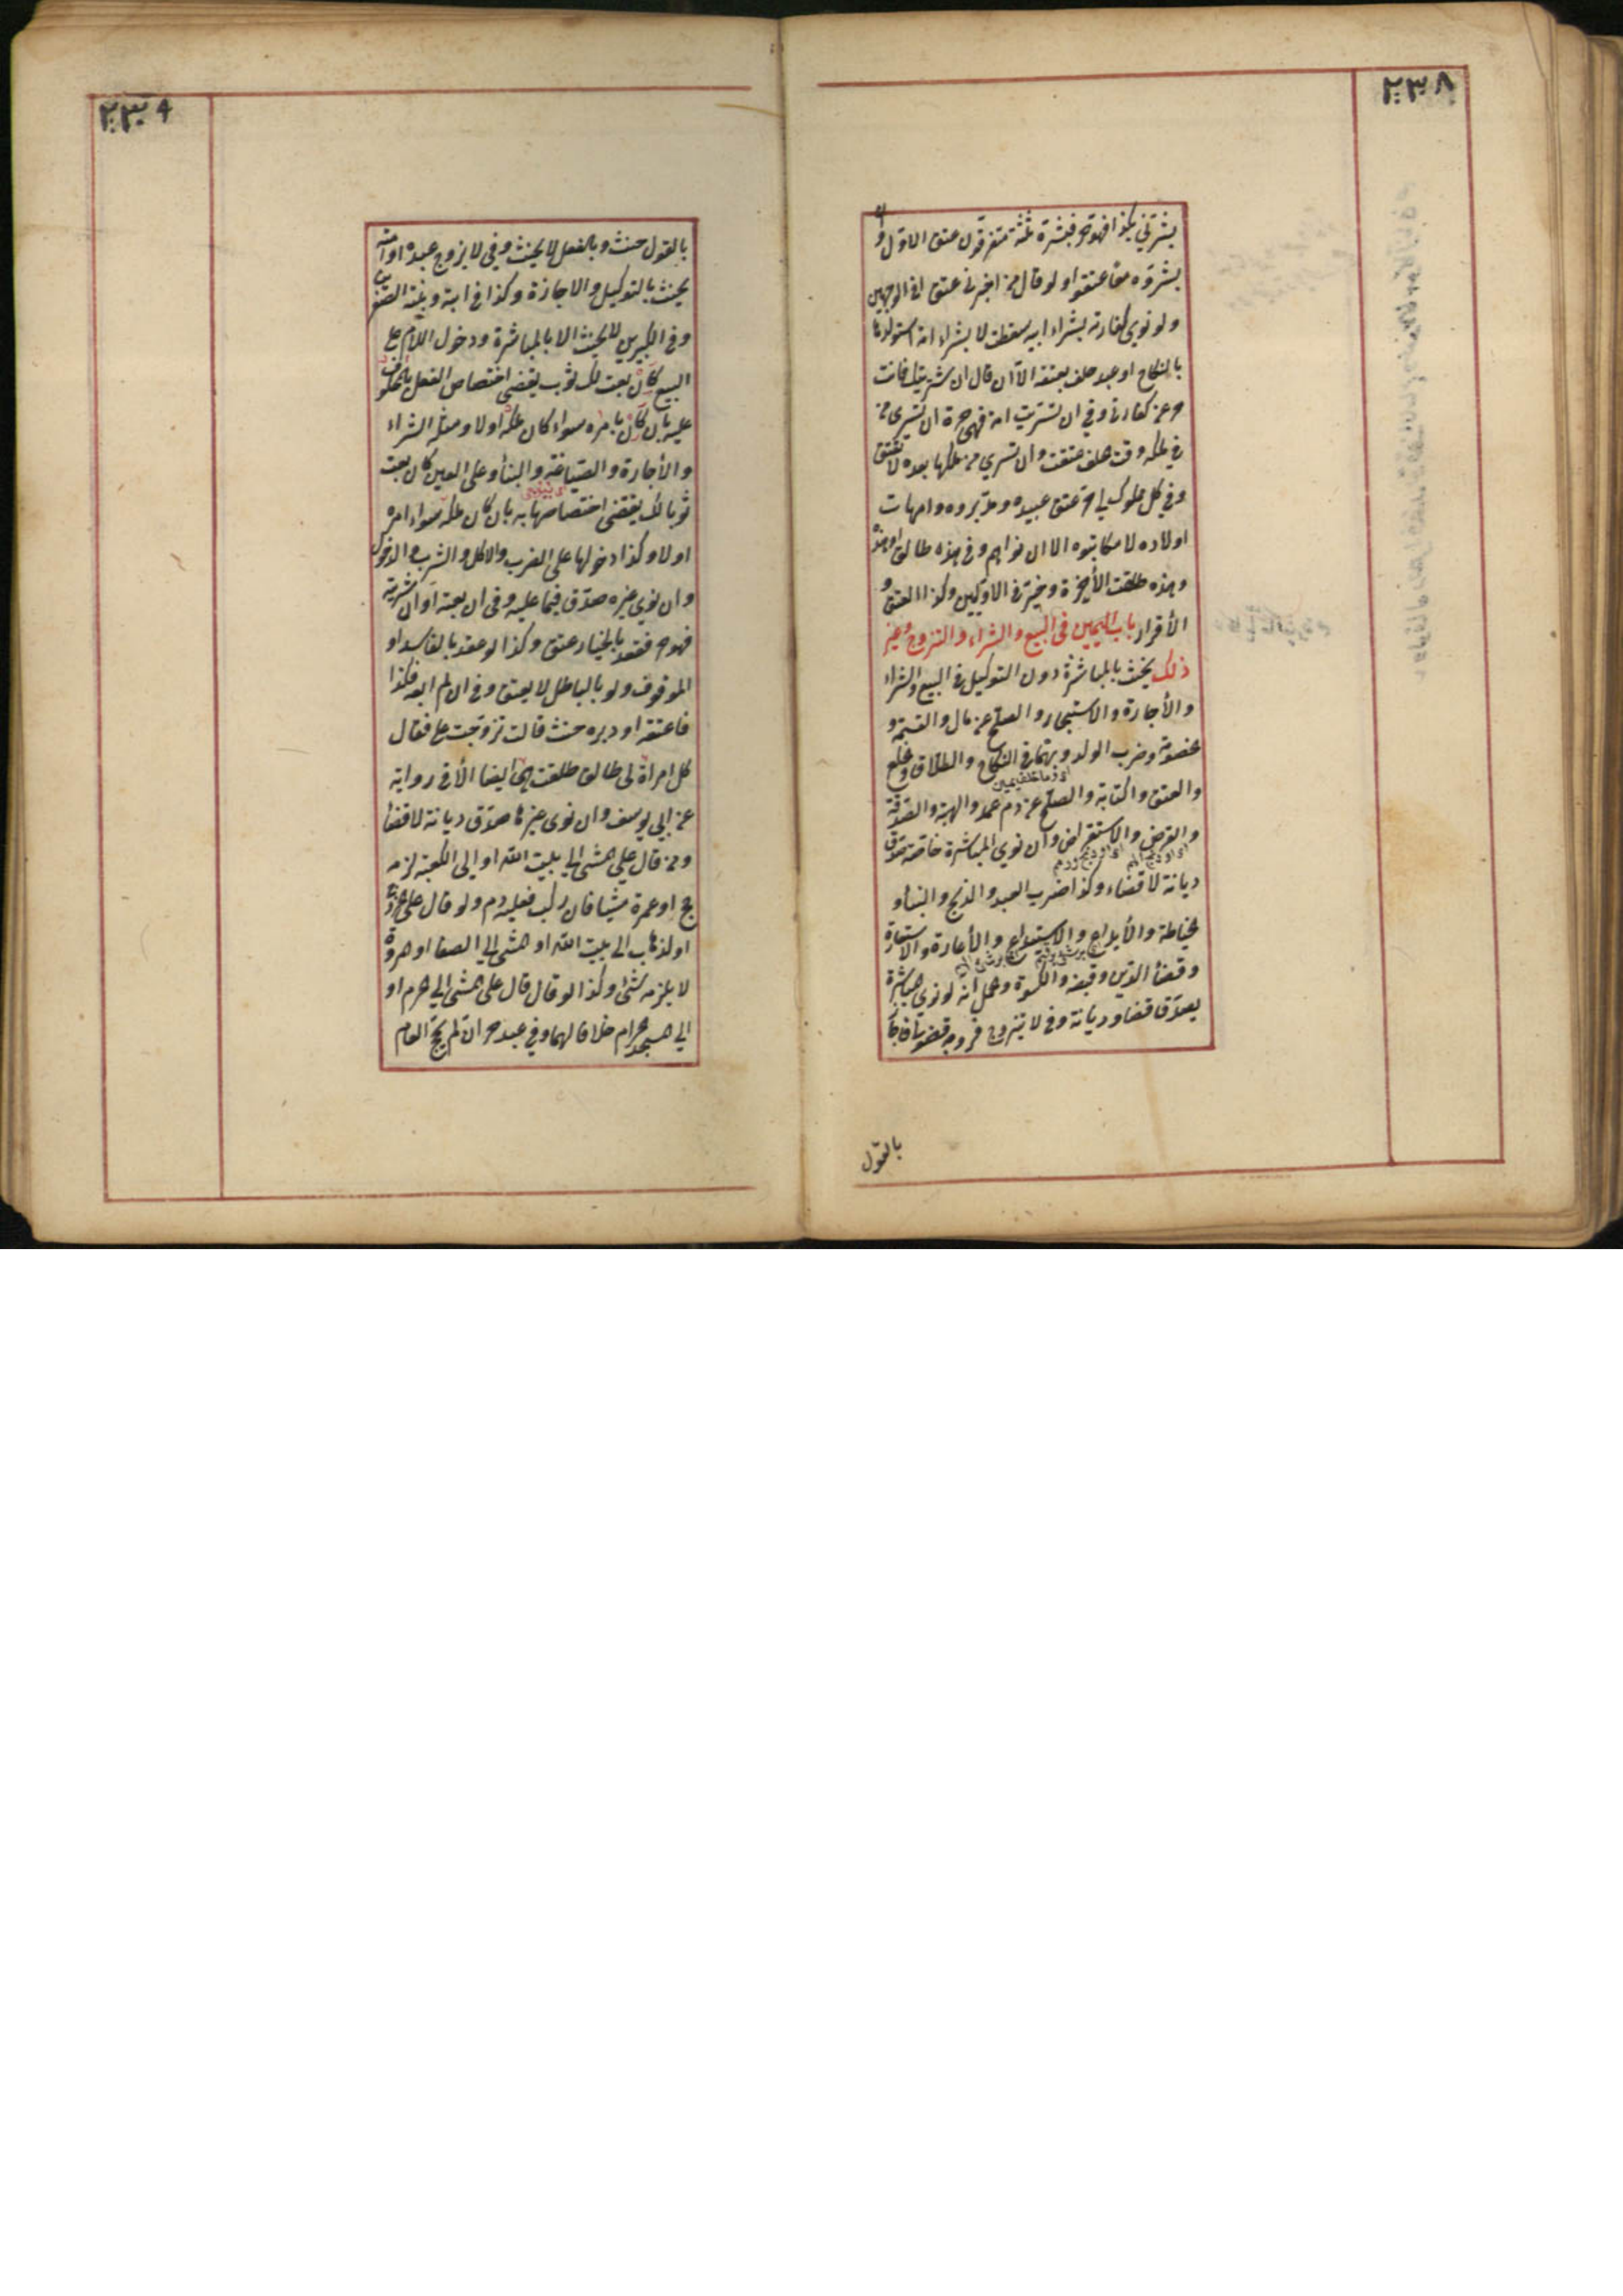 ٢٣٨
بشرني بكذا فهو حر فبشره ثلثة متفرقون عتق الاول وان
بشروه معا عتقوا ولو قال من اخبرني عتق في الوجهين
ولو نوى كفارته بشراء ابيه سقطت لا بشراء امة استولدها
بالنكاح او عبد حلف بعتقه الا ان قال ان شريتك فانت
حر عن كفارتي وفي ان تسريت امة فهي حرة ان تسرى من
في ملكه وقت حلف عتقت وان تسرى من ملكها بعده لا تعتق
وفي كل مملوك لي حر عتق عبيده ومدبروه وامهات
اولاده لا مكاتبوه الا ان نواهم وفي هذه طالق او هذه
وهذه طلقت الأخيرة وخير في الاوليين وكذا العتق و
الأقرار باب اليمين في البيع والشراء والتزوج وغير
ذلك يحنث بالمباشرة دون التوكيل في البيع والشراء
والأجارة والاستيجار والصلح عن مال والقسمة و
خصومة وضرب الولد وبهما في النكاح والطلاق وخلع
والعتق والكتابة والصلح عن دم عمد والهبة والصدقة
والقرض والاستقراض وان نوى المباشرة خاصة صدق
ديانة لا قضاء وكذا ضرب العبد والذبح والبناء و
خياطة والأيداع والاستيداع والأعارة والاستعارة
وقضاء الدين وقبضه والكسوة وحمل انه لو نوى مباشرة
يصدق قضاء وديانة وفي لا يتزوج فزوجه فضولي فاجاز
بالقول
٢٣٩
بالقول حنث وبالفعل لا يحنث وفي لا يزوج عبده او امته
يحنث بالتوكيل والاجازة وكذا في ابنه وبنته الصغيرين
وفي الكبيرين لا يحنث الا بالمباشرة ودخول اللام على
البيع كان بعت لك ثوب يقتضي اختصاص الفعل بالمحلوف
عليه بان كان بامره سواء كان ملكه اولا ومثله الشراء
والأجارة والصياغة والبناء وعلى العين كان بعت
ثوبا لك يقتضي اختصاصها به بان كان ملكه سواء امره
اولا وكذا دخولها على الضرب والاكل والشرب والدخول
وان نوى غيره صدق فيما عليه وفي ان بعته او ان شريته
فهو حر فعقد بالخيار عتق وكذا لو عقد بالفاسد او
الموقوف ولو بالباطل لا يعتق وفي ان لم ابعه فكذا
فاعتقه او دبره حنث قالت تزوجت علي فقال
كل امرأة لي طالق طلقت هي ايضا الا في رواية
عن ابي يوسف وان نوى غيرها صدق ديانة لا قضاء
ومن قال علي المشي الى بيت الله او الى الكعبة لزمه
حج او عمرة مشيا فان ركب فعليه دم ولو قال علي خروج
او لذهاب الى بيت الله او المشي الى الصفا او المروة
لا يلزمه شئ وكذا لو قال قال علي المشي الى الحرم او
الى المسجد الحرام خلافا لهما وفي عبده حر ان لم يحج العام